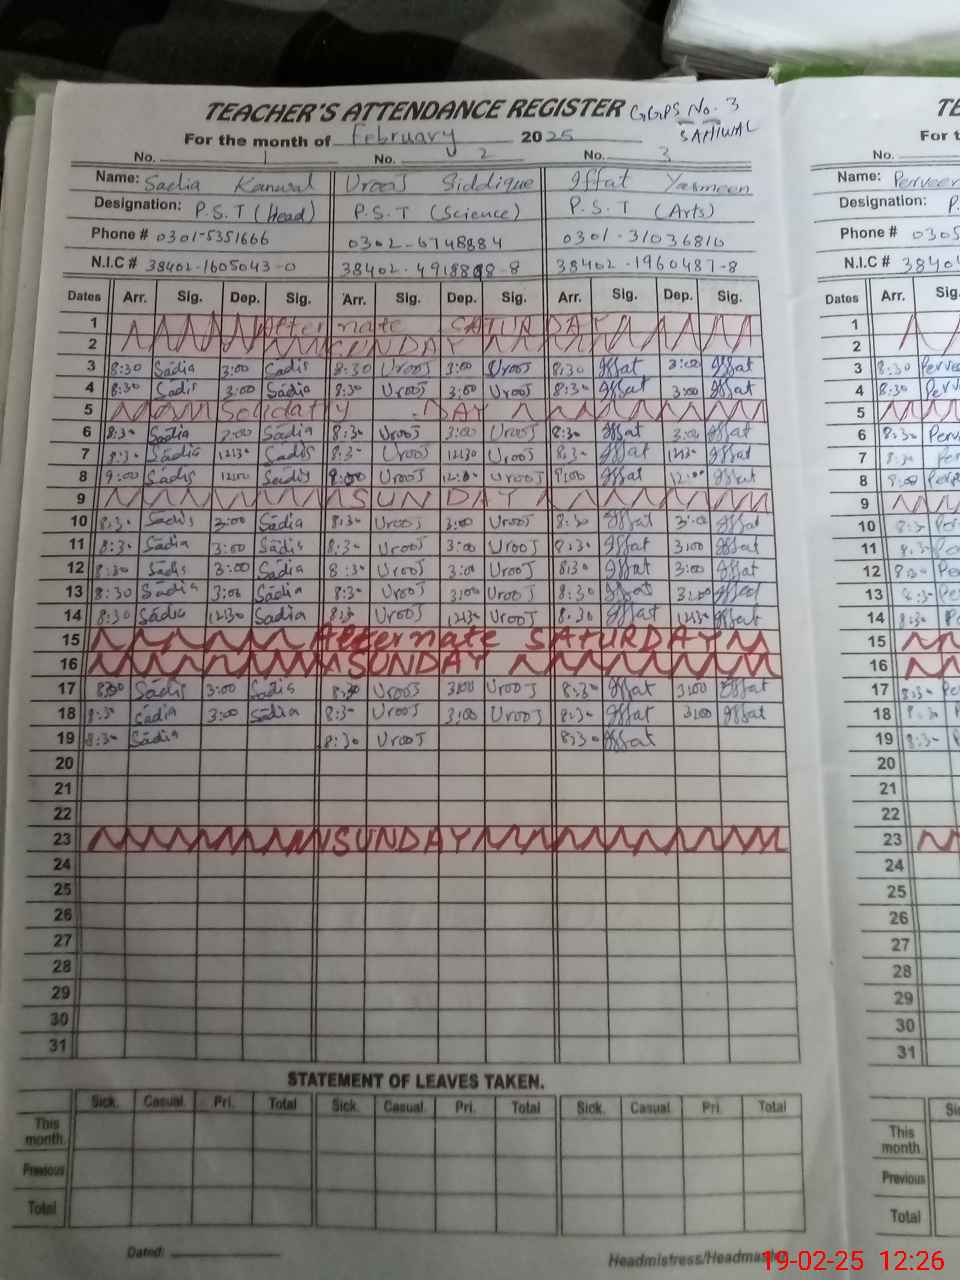 TEACHER'S ATTENDANCE REGISTER GGPS No. 3
For the month of February 2025 SAHIWAL
No. 1 No. 2 No. 3
Name: Sadia Kanwal Urooj Siddique Iffat Yasmeen
Designation: P.S.T (Head) P.S.T (Science) P.S.T (Arts)
Phone # 0301-5351666 0302-6748884 0301-31036810
N.I.C # 38402-1605043-0 38402-4918898-8 38402-1960487-8
Dates Arr. Sig. Dep. Sig. Arr. Sig. Dep. Sig. Arr. Sig. Dep. Sig.
1 Alternate SATURDAY
2 SUNDAY
3 8:30 Sadia 3:00 Sadia 8:30 Urooj 3:00 Urooj 8:30 Iffat 3:00 Iffat
4 8:30 Sadia 3:00 Sadia 8:30 Urooj 3:00 Urooj 8:30 Iffat 3:00 Iffat
5 Solidatiy DAY
6 8:30 Sadia 3:00 Sadia 8:30 Urooj 3:00 Urooj 8:30 Iffat 3:00 Iffat
7 8:30 Sadia 12:30 Sadia 8:30 Urooj 12:30 Urooj 8:30 Iffat 12:30 Iffat
8 9:00 Sadia 12:00 Sadia 9:00 Urooj 12:00 Urooj 9:00 Iffat 12:00 Iffat
9 SUNDAY
10 8:30 Sadia 3:00 Sadia 8:30 Urooj 3:00 Urooj 8:30 Iffat 3:00 Iffat
11 8:30 Sadia 3:00 Sadia 8:30 Urooj 3:00 Urooj 8:30 Iffat 3:00 Iffat
12 8:30 Sadia 3:00 Sadia 8:30 Urooj 3:00 Urooj 8:30 Iffat 3:00 Iffat
13 8:30 Sadia 3:00 Sadia 8:30 Urooj 3:00 Urooj 8:30 Iffat 3:00 Iffat
14 8:30 Sadia 12:30 Sadia 8:30 Urooj 12:30 Urooj 8:30 Iffat 12:30 Iffat
15 Alternate SATURDAY
16 SUNDAY
17 8:30 Sadia 3:00 Sadia 8:30 Urooj 3:00 Urooj 8:30 Iffat 3:00 Iffat
18 8:30 Sadia 3:00 Sadia 8:30 Urooj 3:00 Urooj 8:30 Iffat 3:00 Iffat
19 8:30 Sadia 8:30 Urooj 8:30 Iffat
20
21
22
23 SUNDAY
24
25
26
27
28
29
30
31
STATEMENT OF LEAVES TAKEN.
Sick. Casual. Pri. Total Sick. Casual. Pri. Total Sick. Casual. Pri. Total
This month.
Previous
Total
Dated:
Headmistress/Headmaster
For t
No.
Name: Perveen
Designation: P.
Phone # 0305
N.I.C # 3840
Dates Arr. Sig.
1
2
3 8:30
4 8:30
5
6 8:30
7 8:30
8 9:00
9
10 8:30
11 8:30
12 8:30
13 8:30
14 8:30
15
16
17 8:30
18 8:30
19 8:30
20
21
22
23
24
25
26
27
28
29
30
31
This month
Previous
Total
19-02-25 12:26